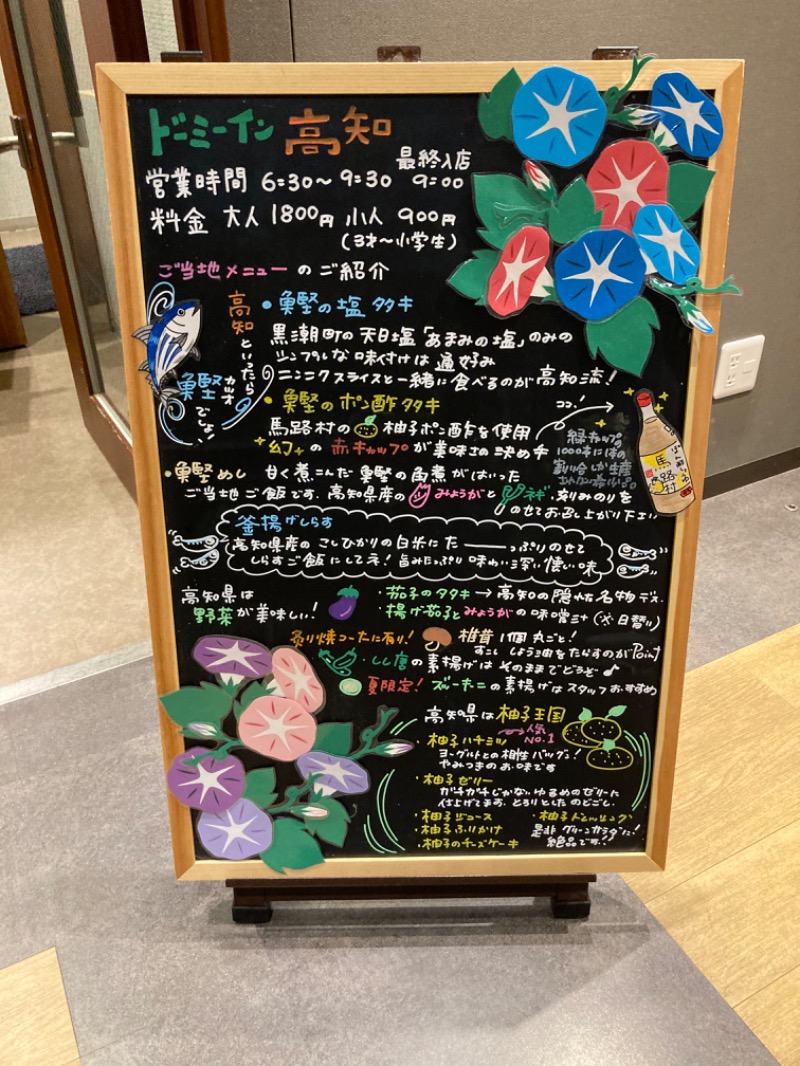 ドーミーイン 高知
最終入店
営業時間 6:30〜9:30 9:00
料金 大人 1800円 小人 900円
(3才〜小学生)
ご当地メニュー の ご紹介
高知といったら
鰹でしょ!
カツオ
・鰹の塩タタキ
黒潮町の天日塩「あまみの塩」のみの
シンプルな味付けは通好み
ニンニクスライスと一緒に食べるのが高知流!
・鰹のポン酢タタキ
ココ!
馬路村の 柚子ポン酢を使用
幻の赤キャップが美味さの決め手
緑キャップの
1000本に1本の
割り合いしか生産
馬路村
・鰹めし 甘く煮こんだ鰹の角煮がはいった
ご当地ご飯です。高知県産の みょうがと ネギ、刻みのりを
のせてお召し上がり下さい
釜揚げしらす
高知県産のこしひかりの白米にたーーっぷりのせて
しらすご飯にしてネ! 旨みたっぷり 味わい深い懐い味
高知県は
野菜が美味しい!
・茄子のタタキ → 高知の隠れた名物デス
・揚げ茄子とみょうがの味噌汁 (※日替り)
炙り焼コーナーに有り! 椎茸1個丸ごと!
すこししょうゆをたらすのがPoint
・しし唐の素揚げはそのままでどうぞ♪
夏限定! ズッキーニの素揚げはスタッフおすすめ
高知県は柚子王国
人気
No.1
・柚子ハチミツ
ヨーグルトとの相性バツグン!
やみつきのお味です
・柚子ゼリー
ガチガチじゃない、ゆるめのゼリーに
仕上げてます。とろりとしたのどごし。
・柚子ジュース ・柚子ドレッシング
・柚子ふりかけ 是非グリーンサラダに!
・柚子のチーズケーキ 絶品です!